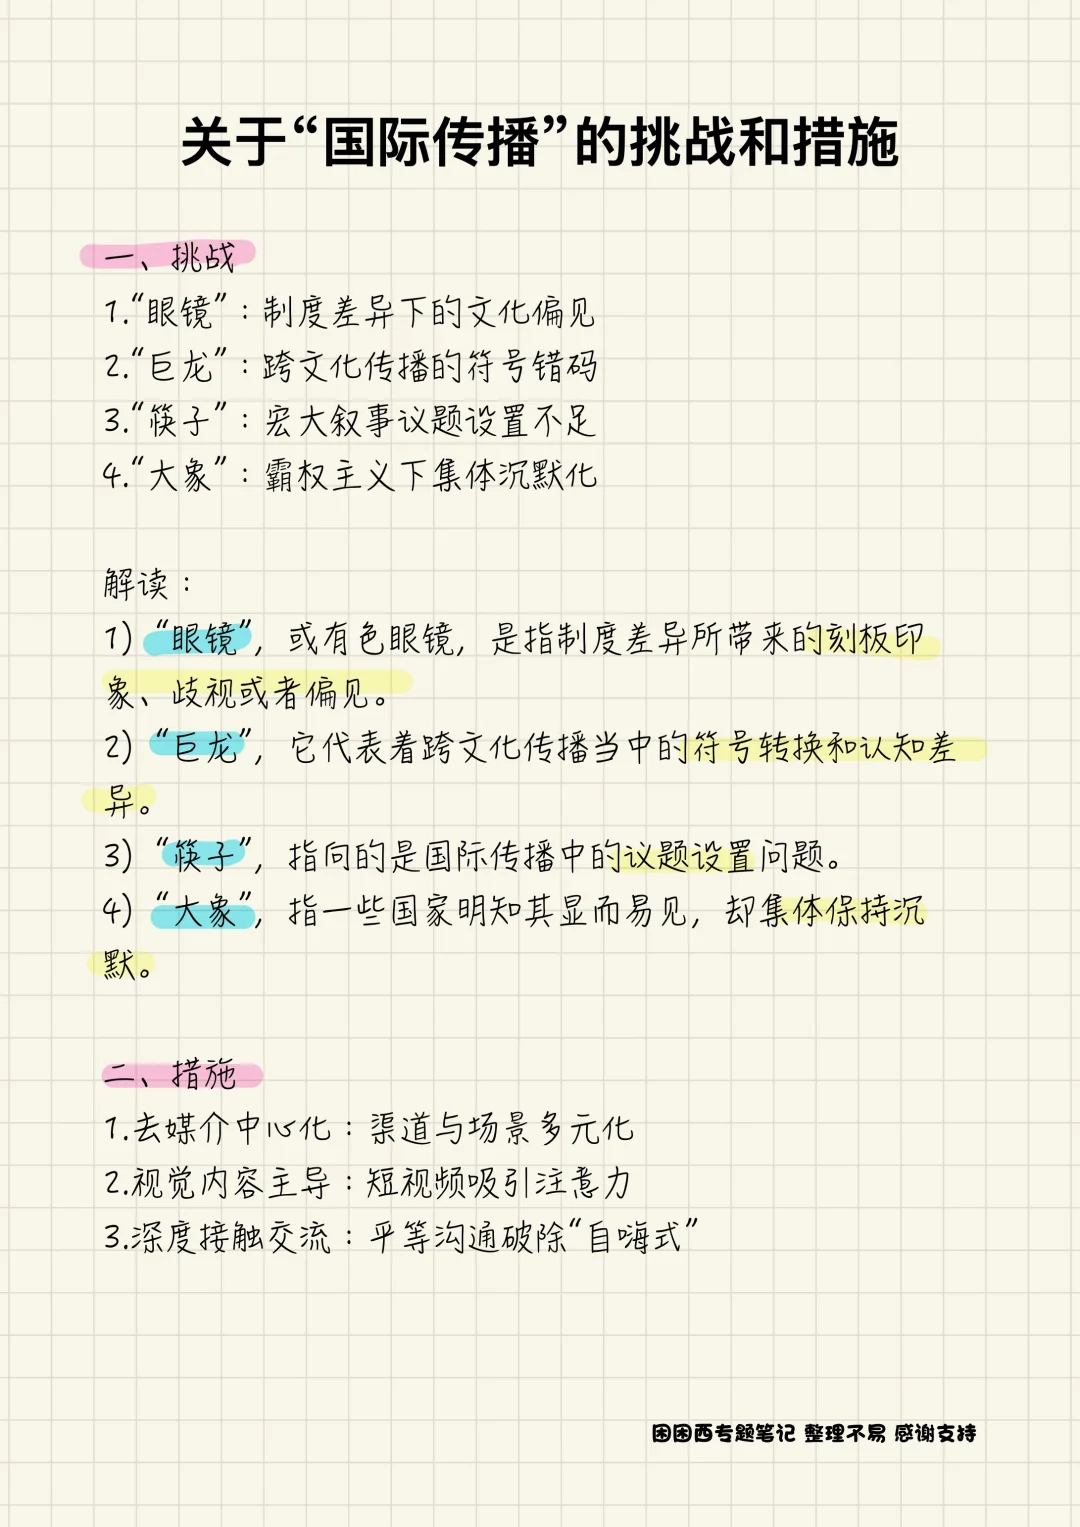 关于“国际传播”的挑战和措施
一、挑战
1.“眼镜”：制度差异下的文化偏见
2.“巨龙”：跨文化传播的符号错码
3.“筷子”：宏大叙事议题设置不足
4.“大象”：霸权主义下集体沉默化
解读：
1）“眼镜”，或有色眼镜，是指制度差异所带来的刻板印
象、歧视或者偏见。
2）“巨龙”，它代表着跨文化传播当中的符号转换和认知差
异。
3）“筷子”，指向的是国际传播中的议题设置问题。
4）“大象”，指一些国家明知其显而易见，却集体保持沉
默。
二、措施
1.去媒介中心化：渠道与场景多元化
2.视觉内容主导：短视频吸引注意力
3.深度接触交流：平等沟通破除“自嗨式”
困困西专题笔记 整理不易 感谢支持